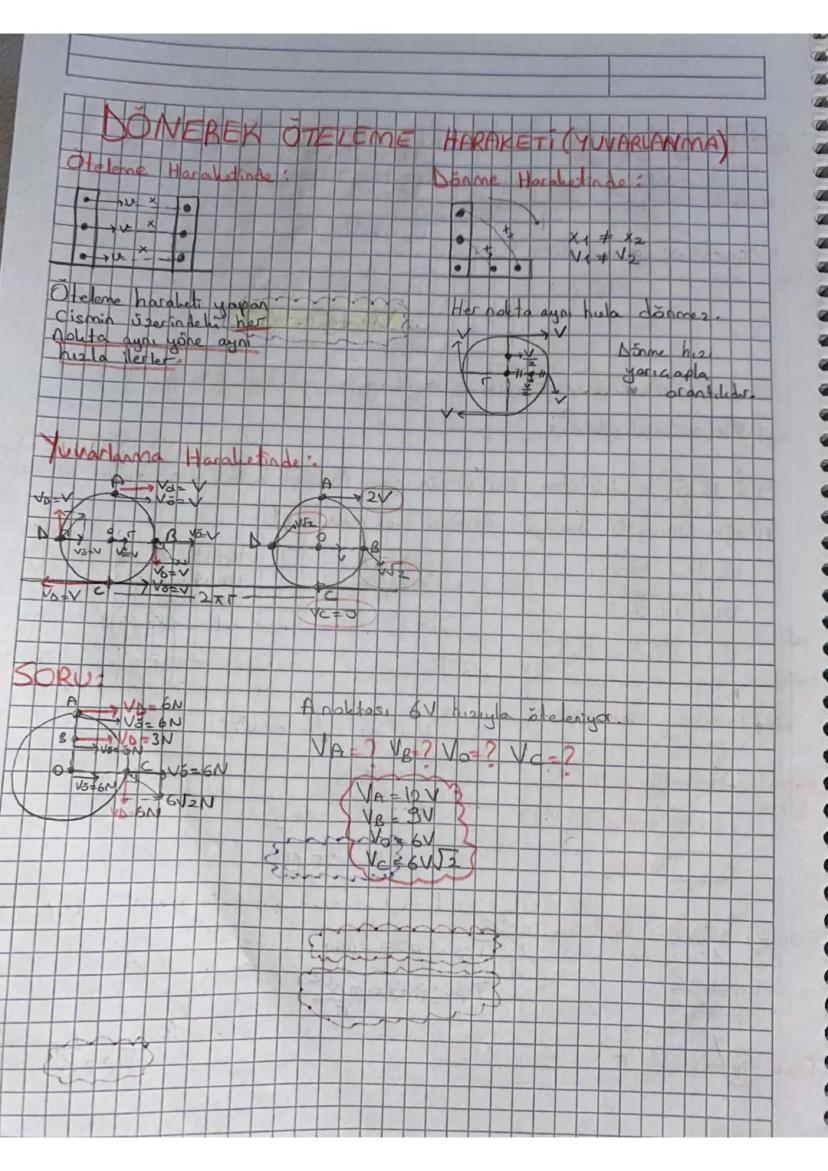 DÖNEREK ÖTELEME HARAKETİ (YUVARLANMA)
Öteleme Haraketinde:
Dönme Haraketinde:
v x
v
v x
x₂
x₁
x₁ ≠ x₂
V₁ ≠ V₂
Öteleme haraketi yapan
Cismin üzerindeki her
Nokta aynı yöne aynı
hızla ilerler.
Her nokta aynı hızla dönmez.
V V
r
V V
Dönme hızı
yarıçapla
orantılıdır.
Yuvarlanma Haraketinde:
A Vd=V
Vö=V
VD=V
D Vö=V Vö=V r B Vö=V
VD=V
VD=V C Vö=V
2πr
A 2V
V√2
D O B
V√2
C
VC=0
SORU:
A VD=6N
Vö=6N
B VD=3N
Vö=6N
O Vö=6N C Vö=6N
6√2N
VD 6N
A noktası 6V hızıyla öteleniyor.
VA=? VB=? VO=? VC=?
VA=12V
VB=9V
VO=6V
VC=6V√2